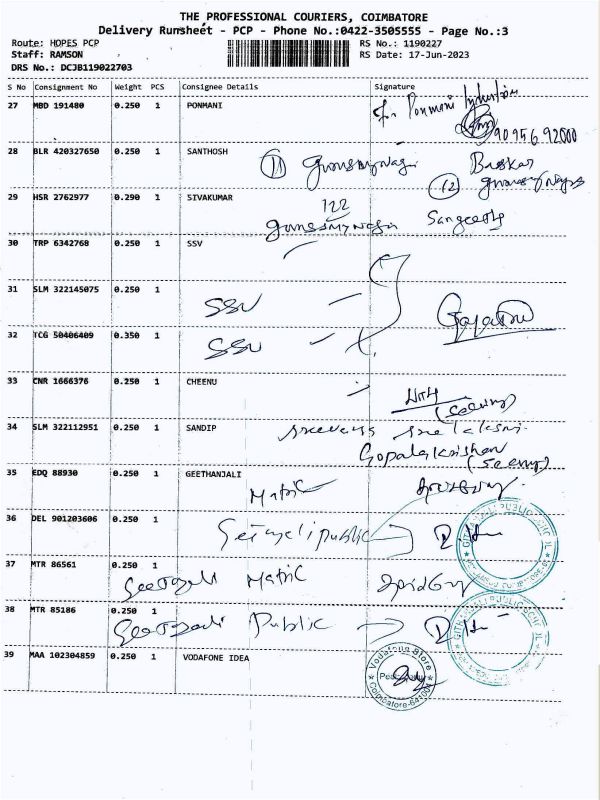 THE PROFESSIONAL COURIERS, COIMBATORE
Delivery Runsheet - PCP - Phone No.:0422-3505555 - Page No.:3
Route: HOPES PCP
RS No.: 1190227
Staff: RAMSON
RS Date: 17-Jun-2023
DRS No.: DCJB119022703
S No Consignment No Weight PCS Consignee Details Signature
27 MBD 191480 0.250 1 PONMANI
for Ponmani Industries
90956 92000
28 BLR 420327650 0.250 1 SANTHOSH
(1)
Baskar
(2)
29 HSR 2762977 0.290 1 SIVAKUMAR
122
Sangeetha
30 TRP 6342768 0.250 1 SSV
31 SLM 322145075 0.250 1
SSV
32 TCG 50406409 0.350 1
SSV
33 CNR 1666376 0.250 1 CHEENU
34 SLM 322112951 0.250 1 SANDIP
Gopalakrishnan
35 EDQ 88930 0.250 1 GEETHANJALI
Matric
36 DEL 901203606 0.250 1
public
37 MTR 86561 0.250 1
Matric
38 MTR 85186 0.250 1
Public
39 MAA 102304859 0.250 1 VODAFONE IDEA
Vodafone Store
Coimbatore-641004